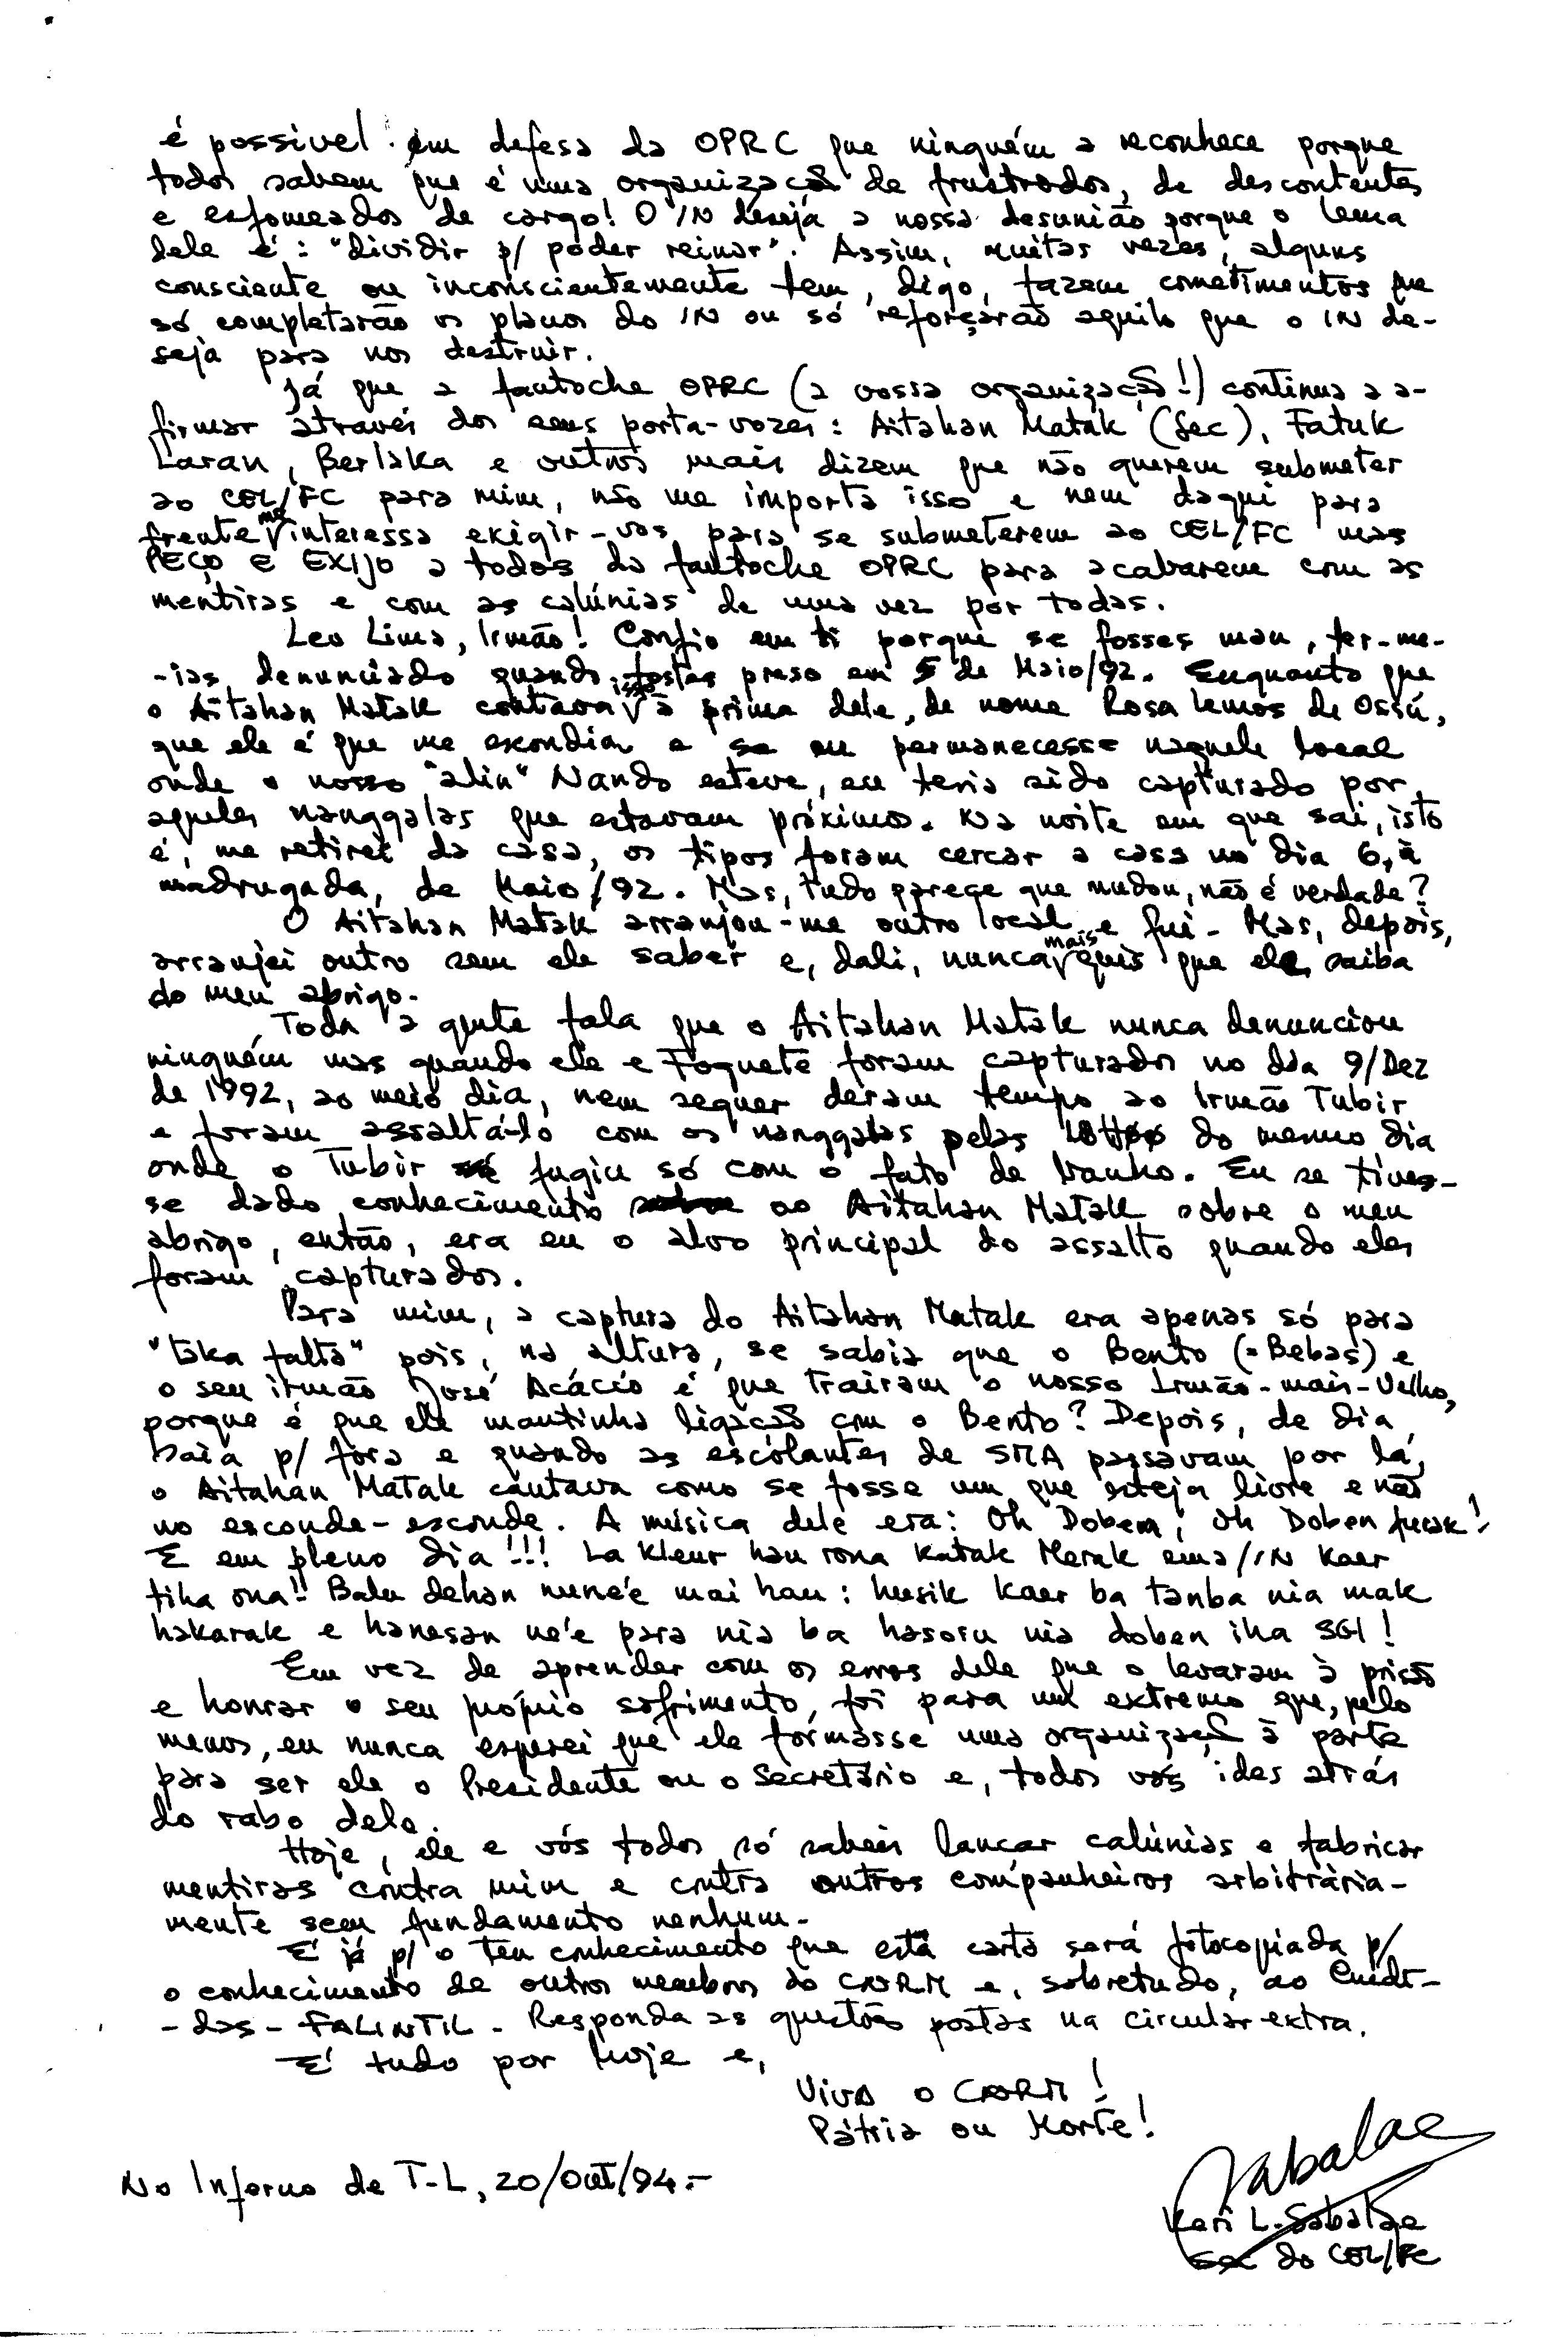 é possivel em defesa da OPRC que ninguém a reconhece porque
todos sabem que é uma organização de frustrados, de descontentes
e esfomeados de cargo! O IN deseja a nossa desunião porque o lema
dele é: "dividir p/ poder reinar". Assim, muitas vezes, alguns
consciente ou inconscientemente tem, digo, fazem cometimentos que
só completarão os planos do IN ou só reforçarão aquilo que o IN de-
seja para nos destruir.
Já que a fantoche OPRC (a vossa organização!) continua a a-
firmar através dos seus porta-vozes: Aitahan Matak (Sec), Fatuk
Laran, Berlaka e outros mais dizem que não querem submeter
ao CEL/FC para mim, não me importa isso e nem daqui para
frente me interessa exigir-vos para se submeterem ao CEL/FC mas
PEÇO E EXIJO a todos da fantoche OPRC para acabarem com as
mentiras e com as calúnias de uma vez por todas.
Leo Lima, Irmão! Confio em ti porque se fosses mau, ter-me-
-ias denunciado quando fostes preso em 5 de Maio/92. Enquanto que
o Aitahan Matak contava isso à prima dele, de nome Rosa Lemos de Ossú,
que ele é que me escondia e se eu permanecesse naquele local
onde o nosso "alin" Nando esteve, eu teria sido capturado por
aqueles nanggalas que estavam próximos. Na noite em que sai, isto
é, me retirei da casa, os tipos foram cercar a casa no dia 6, à
madrugada, de Maio/92. Mas, tudo parece que mudou, não é verdade?
O Aitahan Matak arranjou-me outro local e fui. Mas, depois,
arranjei outro sem ele saber e, dali, nunca mais quis que ele saiba
do meu abrigo.
Toda a gente fala que o Aitahan Matak nunca denunciou
ninguém mas quando ele e Foguete foram capturados no dia 9/Dez
de 1992, ao meio dia, nem sequer deram tempo ao Irmão Tubir
e foram assaltá-lo com os nanggalas pelas 18H00 do mesmo dia
onde o Tubir fugiu só com o fato de banho. Eu se tives-
se dado conhecimento ao Aitahan Matak sobre o meu
abrigo, então, era eu o alvo principal do assalto quando eles
foram capturados.
Para mim, a captura do Aitahan Matak era apenas só para
"taka falta" pois, na altura, se sabia que o Bento (=Bebas) e
o seu irmão José Acácio é que trairam o nosso Irmão-mais-Velho,
porque é que ele mantinha ligação com o Bento? Depois, de dia
saia p/ fora e quando as escolantes de SMA passavam por lá,
o Aitahan Matak cantava como se fosse um que esteja livre e não
no esconde-esconde. A música dele era: Oh Doben, oh Doben furak!
E em pleno dia!!! La kleur hau rona katak Merak ema/IN kaer
tiha ona!! Balu dehan nune'e mai hau: husik kaer ba tanba nia mak
hakarak e hanesan ne'e para nia ba hasoru nia doben iha SGI!
Em vez de aprender com os erros dele que o levaram à prisão
e honrar o seu próprio sofrimento, foi para um extremo que, pelo
menos, eu nunca esperei que ele formásse uma organização à parte
para ser ele o Presidente ou o Secretário e, todos vós ides atrás
do rabo dele.
Hoje, ele e vós todos só sabeis lançar calúnias e fabricar
mentiras contra mim e contra outros companheiros arbitrária-
mente sem fundamento nenhum.
É já p/ o teu conhecimento que esta carta será fotocopiada p/
o conhecimento de outros membros do CNRM e, sobretudo, ao Cmdt-
-das-FALINTIL. Responda as questões postas na circular extra.
É tudo por hoje e,
Viva o CNRM!
Pátria ou Morte!
No Inferno de T-L, 20/Out/94.-
Sabalae
Keri L. Sabalae
Sec do CEL/FC